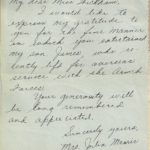 My dear Miss Markham:
I would like to
express my gratitude to
you for the fine manner
in which you entertained
my son James who re-
cently left for overseas
service with the Armed
Forces.
Your generosity will
be long remembered
and appreciated.
Sincerely yours,
Mrs. Julia